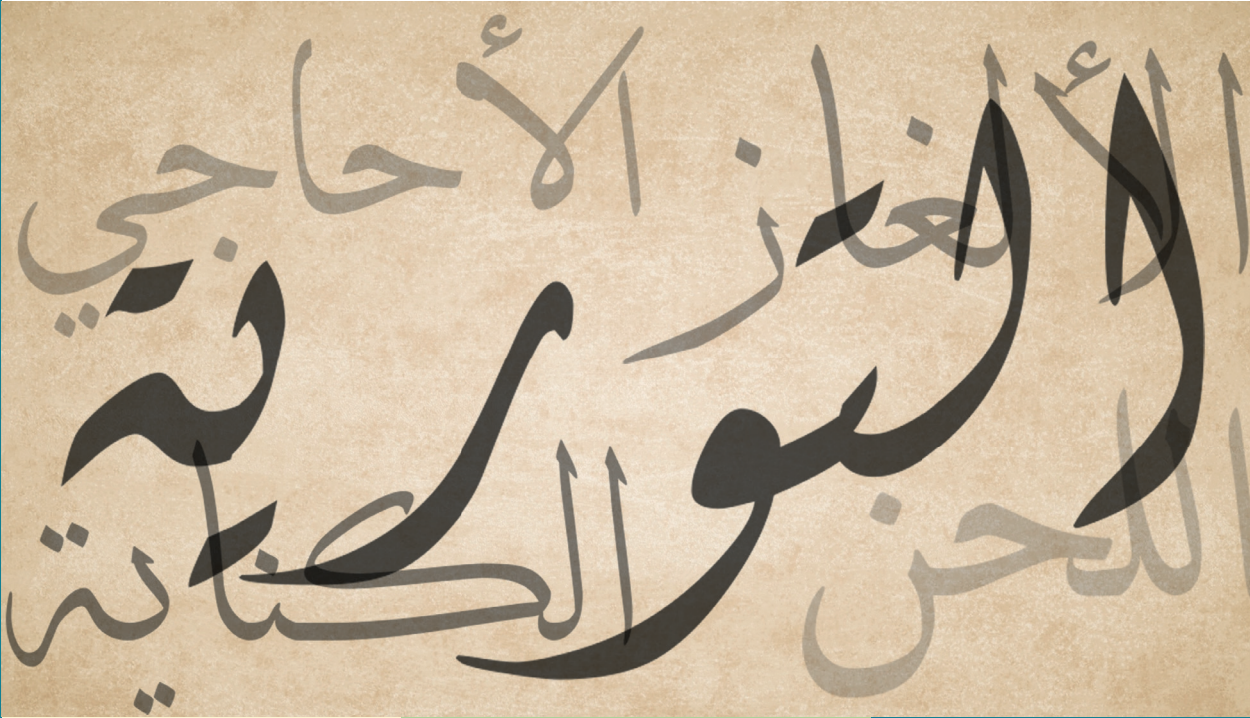 الألغاز
الأحاجي
التورية
اللحن
الكناية